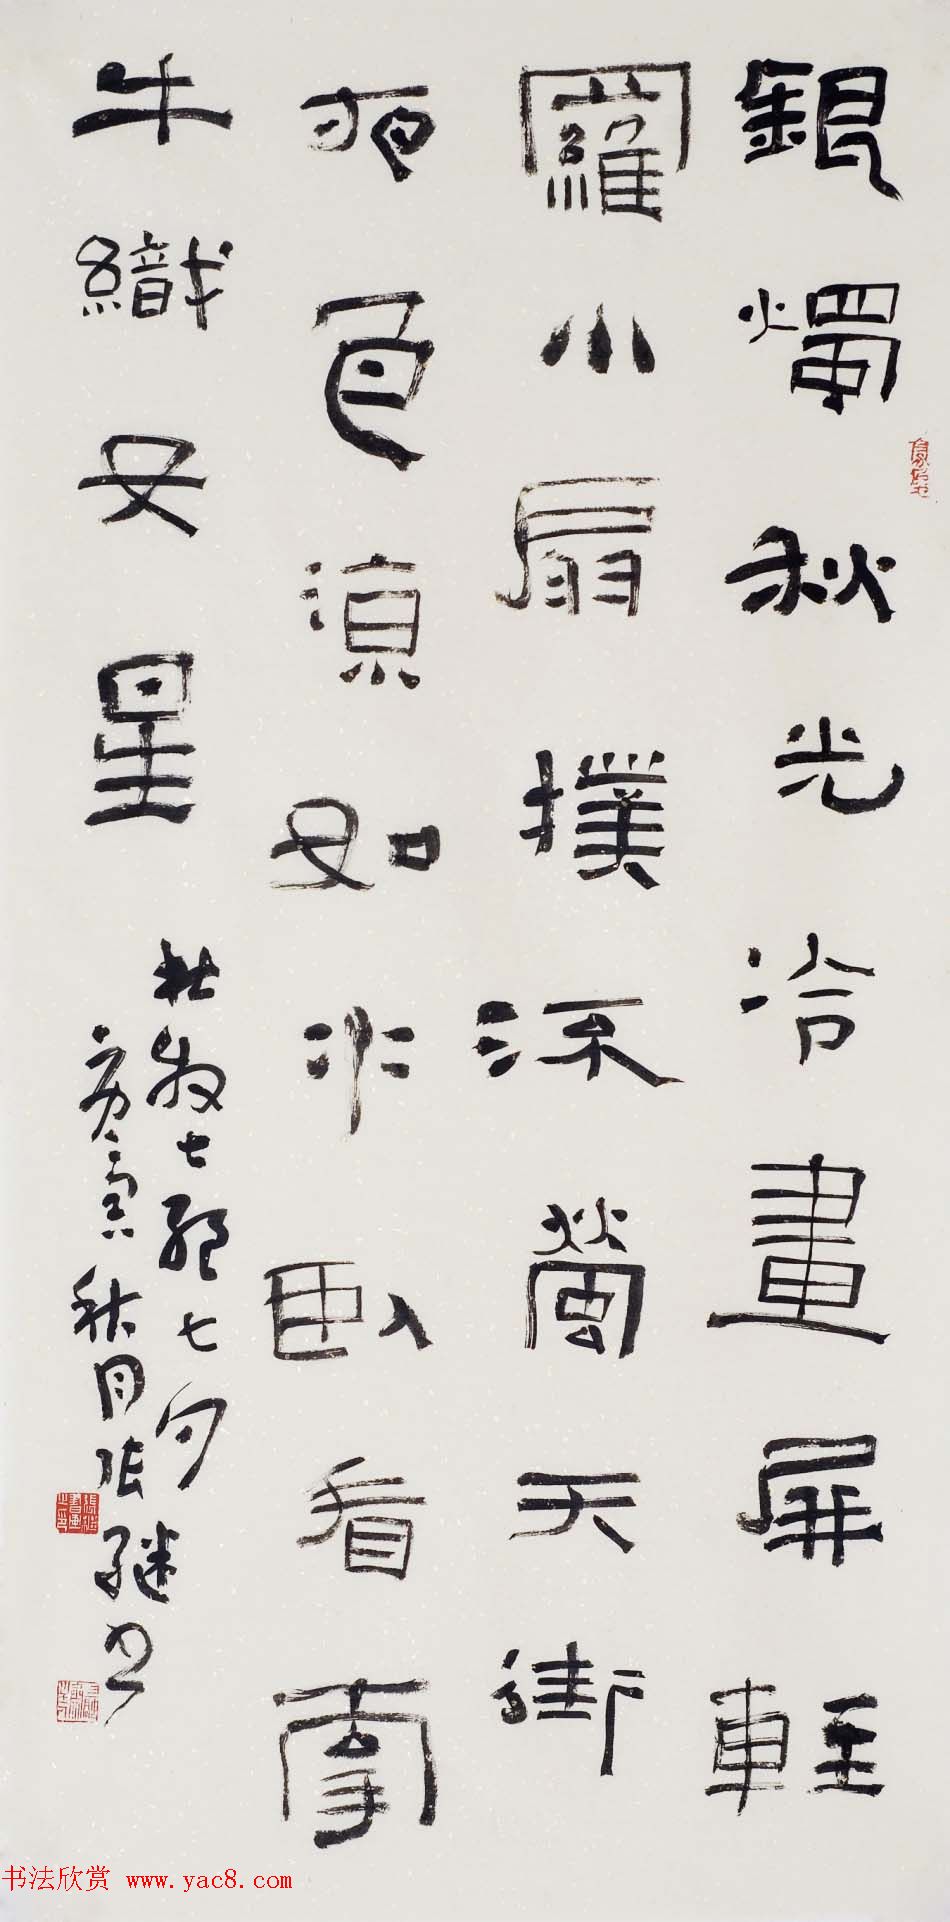 銀燭秋光冷畫屏輕
羅小扇撲流螢天街
夜色涼如水卧看牽
牛織女星
杜牧七絕七夕
秋月张继书
书法欣赏 www.yac8.com